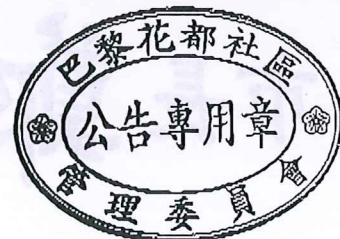 巴黎花都社區
公告專用章
管理委員會